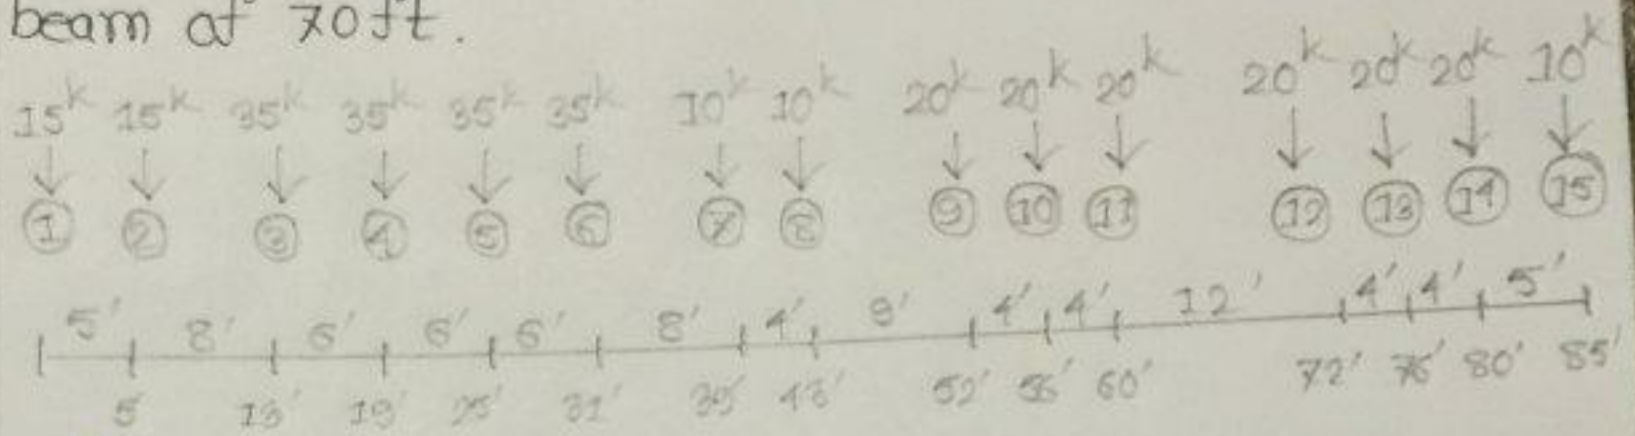 beam of 70ft.
15k 15k 35k 35k 35k 35k 10k 10k 20k 20k 20k 20k 20k 20k 10k
1 2 3 4 5 6 7 8 9 10 11 12 13 14 15
5' 8' 6' 6' 6' 8' 4' 9' 4' 4' 12' 4' 4' 5'
5 13' 19' 25' 31' 39' 43' 52' 56' 60' 72' 76' 80' 85'